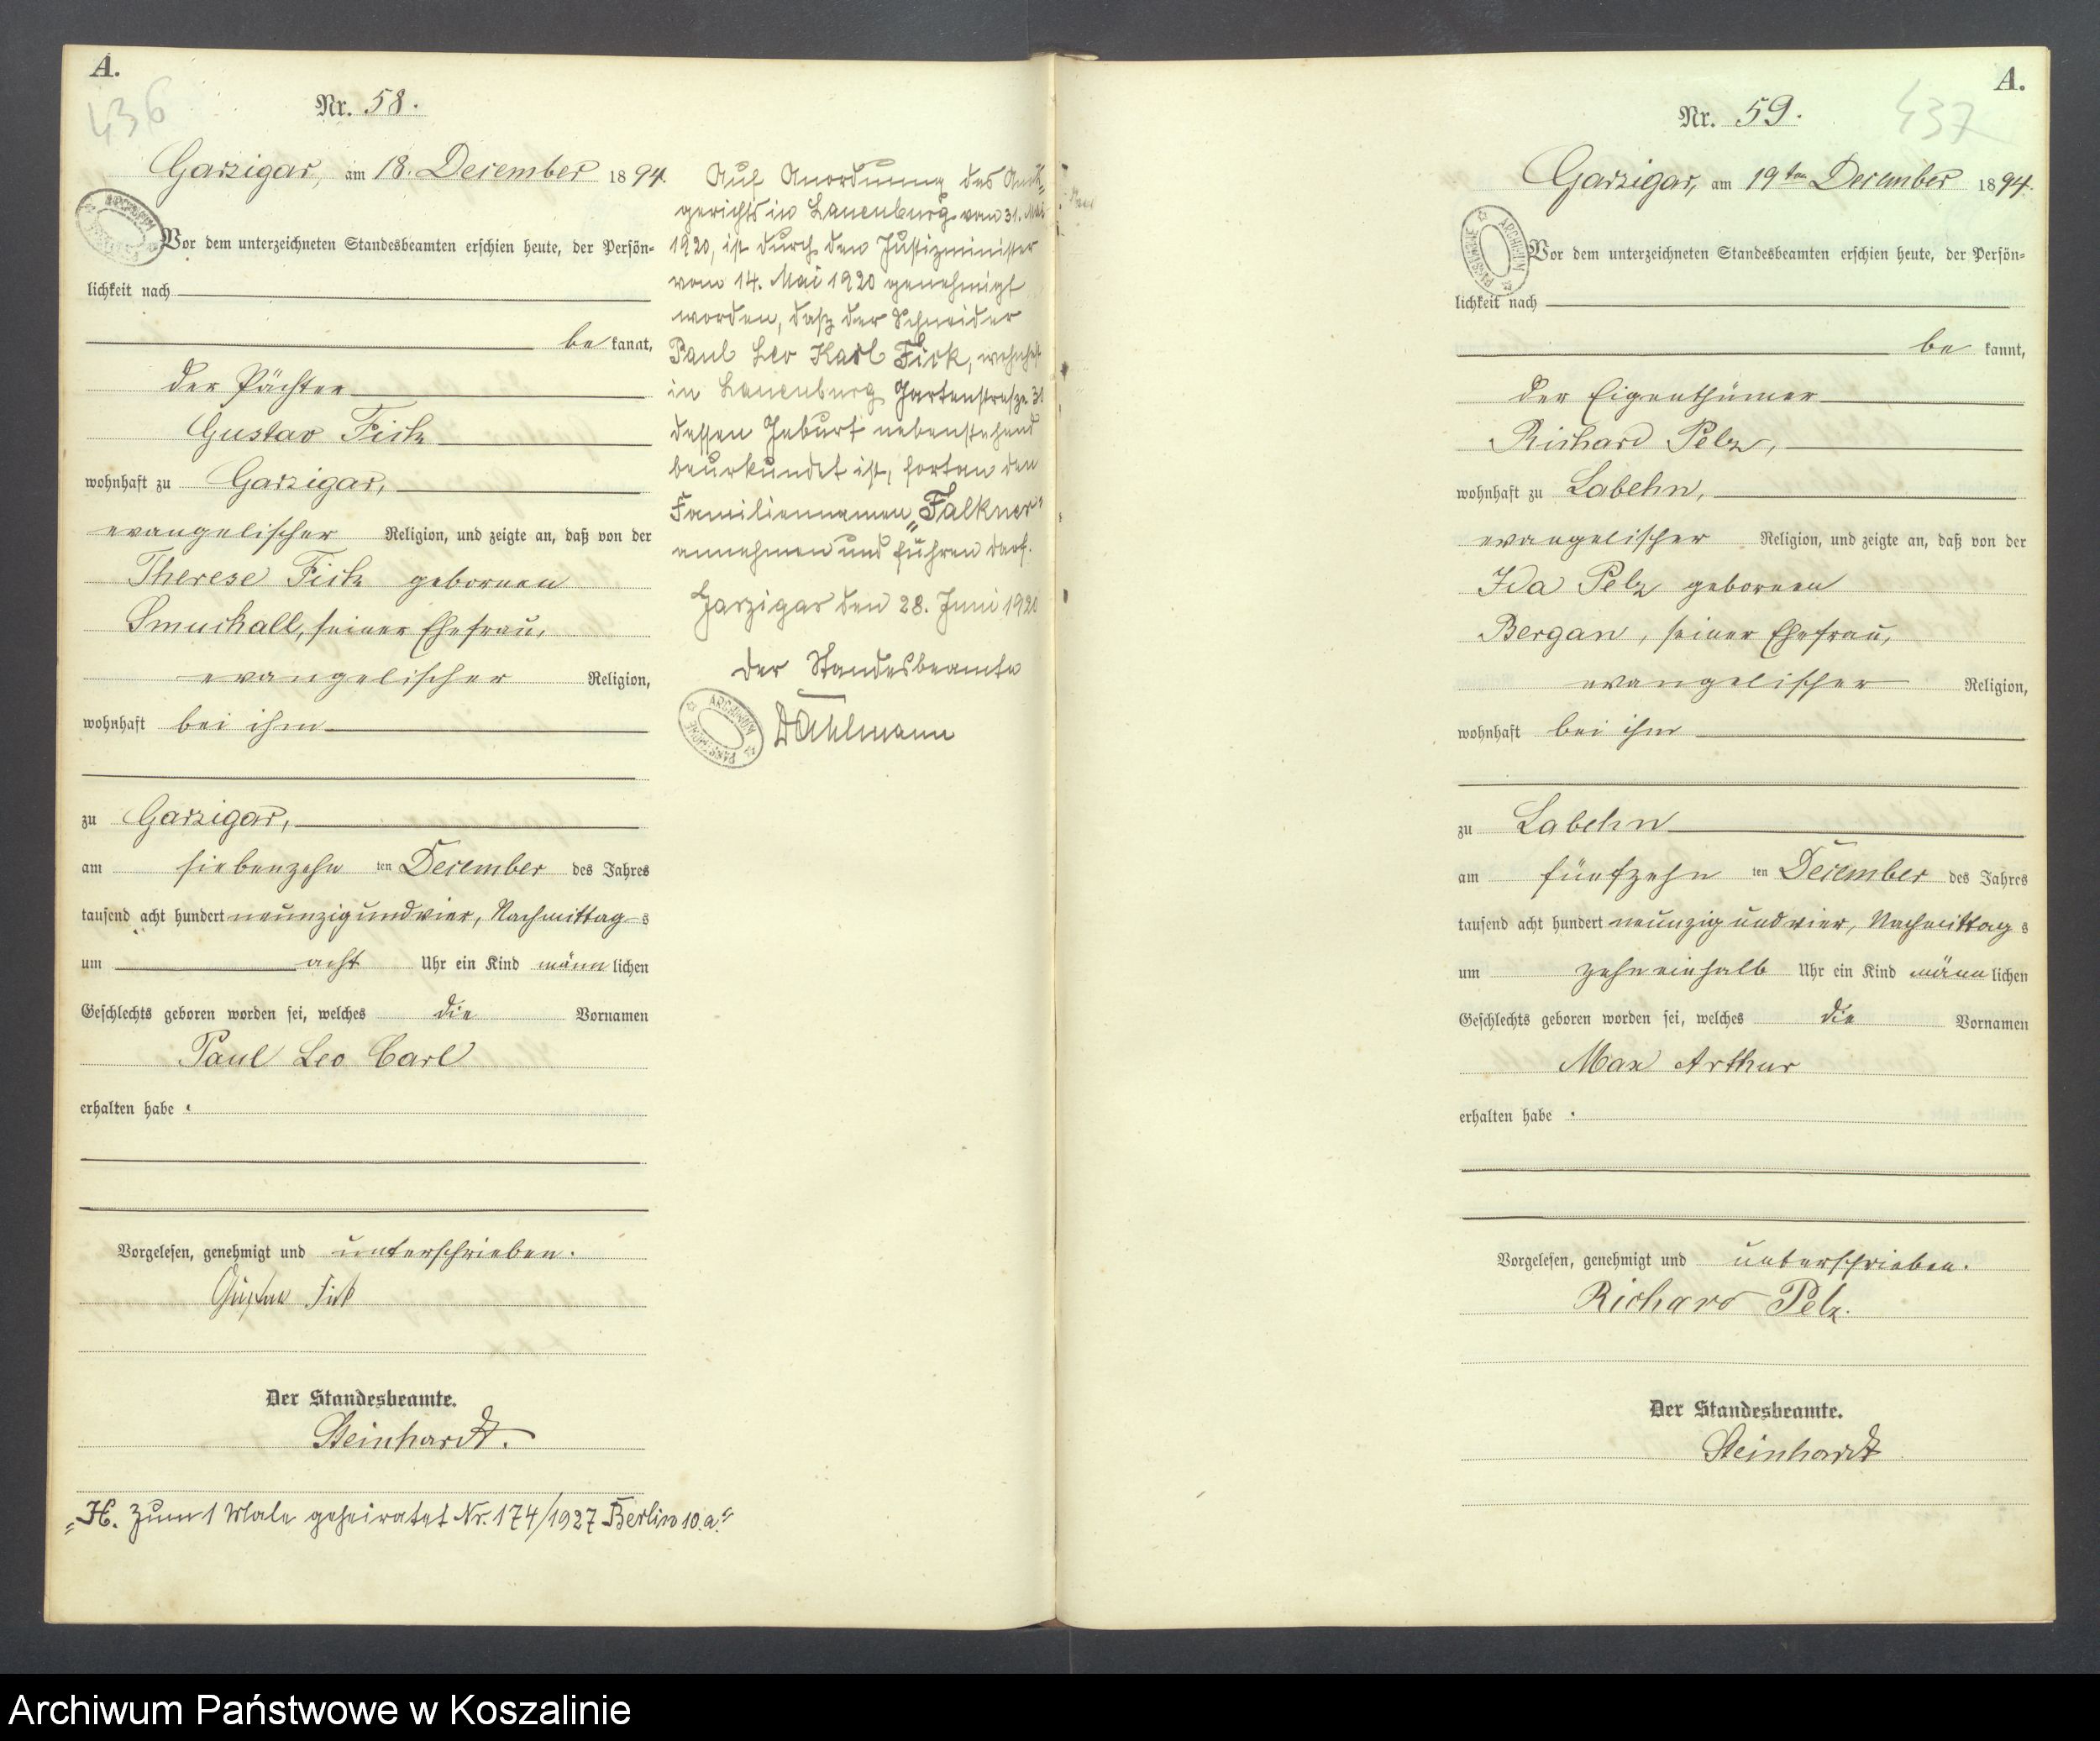 A.
436
Nr. 58.
Garzigar, am 18. December 1894.
Vor dem unterzeichneten Standesbeamten erschien heute, der Persön-
lichkeit nach
be kannt,
der Pächter
Gustav Fick
wohnhaft zu Garzigar,
evangelischer Religion, und zeigte an, daß von der
Therese Fick geborenen
Smuckall, seiner Ehefrau,
evangelischer Religion,
wohnhaft bei ihm
zu Garzigar,
am siebenzehn ten December des Jahres
tausend acht hundert neunzig und vier, Nachmittag s
um acht Uhr ein Kind männ lichen
Geschlechts geboren worden sei, welches die Vornamen
Paul Leo Carl
erhalten habe.
Vorgelesen, genehmigt und unterschrieben.
Gustav Fick
Der Standesbeamte.
Steinhardt.
"H. Zum 1 Male geheiratet Nr. 174/1927 Berlin 10.a."
Auf Anordnung des Amts-
gerichts in Lauenburg vom 31. Mai
1920, ist durch den Justizminister
vom 14. Mai 1920 genehmigt
worden, daß der Schneider
Paul Leo Karl Fick, wohnhaft
in Lauenburg Gartenstraße
dessen Geburt nebenstehend
beurkundet ist, fortan den
Familiennamen „Falkner"
annehmen und führen darf.
Garzigar den 28. Juni 1920
Der Standesbeamte
Dahlmann
ARCHIWUM PAŃSTWOWE
A.
437
Nr. 59.
Garzigar, am 19ten December 1894.
ARCHIWUM PAŃSTWOWE
Vor dem unterzeichneten Standesbeamten erschien heute, der Persön-
lichkeit nach
be kannt,
der Eigenthümer
Richard Pelz,
wohnhaft zu Labehn,
evangelischer Religion, und zeigte an, daß von der
Ida Pelz geborenen
Bergan, seiner Ehefrau,
evangelischer Religion,
wohnhaft bei ihm
zu Labehn
am fünfzehn ten December des Jahres
tausend acht hundert neunzig und vier, Nachmittag s
um zehn einhalb Uhr ein Kind männ lichen
Geschlechts geboren worden sei, welches die Vornamen
Max Arthur
erhalten habe.
Vorgelesen, genehmigt und unterschrieben.
Richard Pelz.
Der Standesbeamte.
Steinhardt
Archiwum Państwowe w Koszalinie